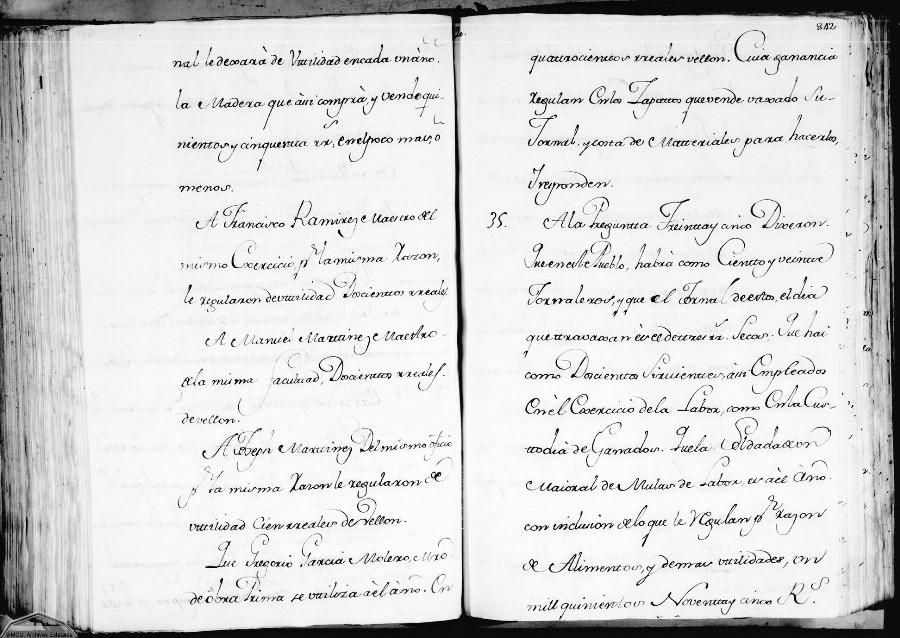 nal le dexarà de Vtilidad encada vn año.
la Madera que àsi comprà, y vende qui-
nientos y cinquenta rr.s, en el poco mas, o
menos.
A Francisco Ramirez Maestro del
mismo Exercicio, pr. la misma Razon,
le regularon de vtilidad Doscientos rreales
A Manuel Martinez Maestro
de la misma facultad, Doscientos rreales.
de vellon.
A Joseph Martinez Del mismo oficio
pr. la misma Razon le regularon de
vtilidad Cien rreales de Vellon.
Que Gregorio Garcia Molero, Mro.
de òbra Prima se vtiliza àl año. En
842
quattrocientos rreales vellon. Cuia ganancia
regulan En los Zapattos que vende vaxado Su
Jornal, y costa de Matteriales para hacerlos,
Y responden.
35. A la Preguntta Treintta y cinco Dixeron.
Que en este Pueblo, habrà como Ciento y veinte
Jornaleros, y que el Jornal de estos, el dia
que travaxan ès el de tres rr.s Secos. Que hai
como Doscientos Sirvientes, àsi Empleados
En èl Exercicio de la Labor, como En la Cus-
todia de Ganados. Que la Soldada de vn
Maioral de Mulas de Labor, es àl Año.
con inclusion de lo que se Regulan pr. razon
de Alimentos, y demas vtilidades, vn
mill quinientos Noventta y cinco R.s
©MCU. Archivos Estatales